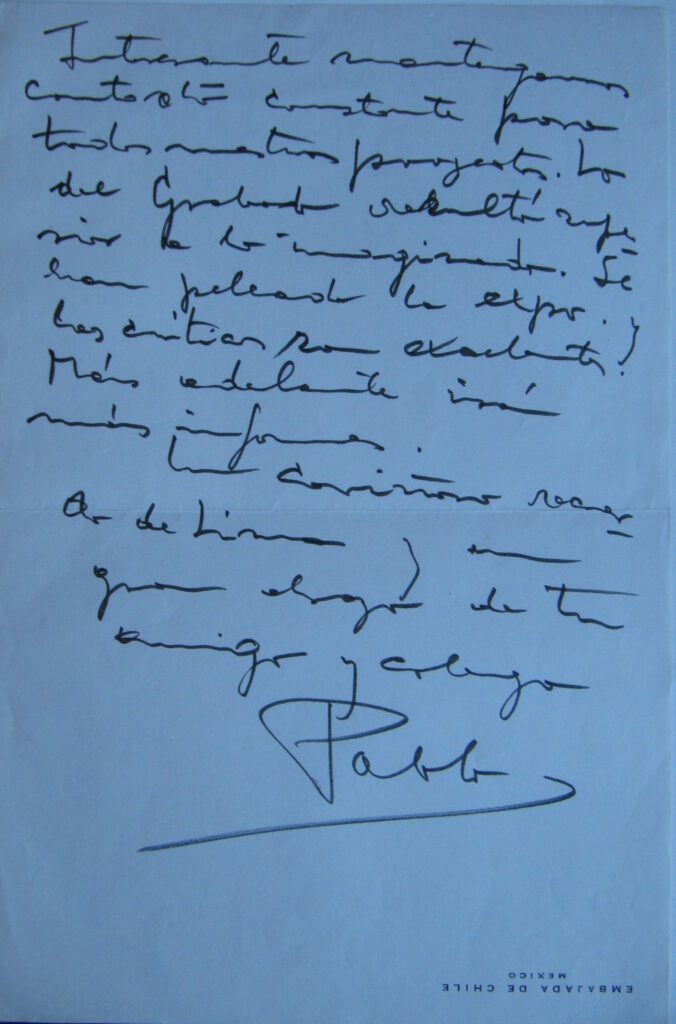 Interesante mantengamos
contacto constante para
todos nuestros proyectos. Lo
del Grabado resultó supe
rior a lo imaginado. Se
han peleado la expo. y
las críticas son excelentes.
Más adelante irá
más informes.
Un cariñoso recuer
do de Lima y un
gran abrazo de tu
amigo y colega
Pablo
EMBAJADA DE CHILE
MEXICO